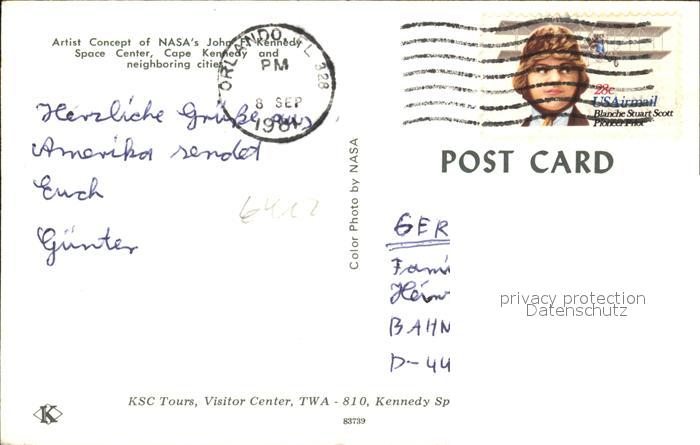 Artist Concept of NASA's John F. Kennedy
Space Center, Cape Kennedy and
neighboring cities
ORLANDO, FL 328
PM
8 SEP
1981
28c
USAirmail
Blanche Stuart Scott
Pioneer Pilot
POST CARD
Herzliche Grüße aus
Amerika sendet
Euch
Günter
6412
Color Photo by NASA
GER
Fami
BAHN
D-44
privacy protection
Datenschutz
K
KSC Tours, Visitor Center, TWA - 810, Kennedy Sp
83739